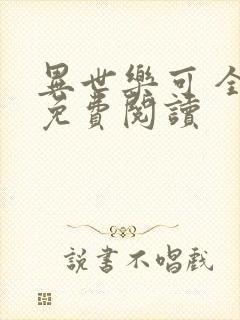 異世樂可 全
免費閱讀
說書不唱戲